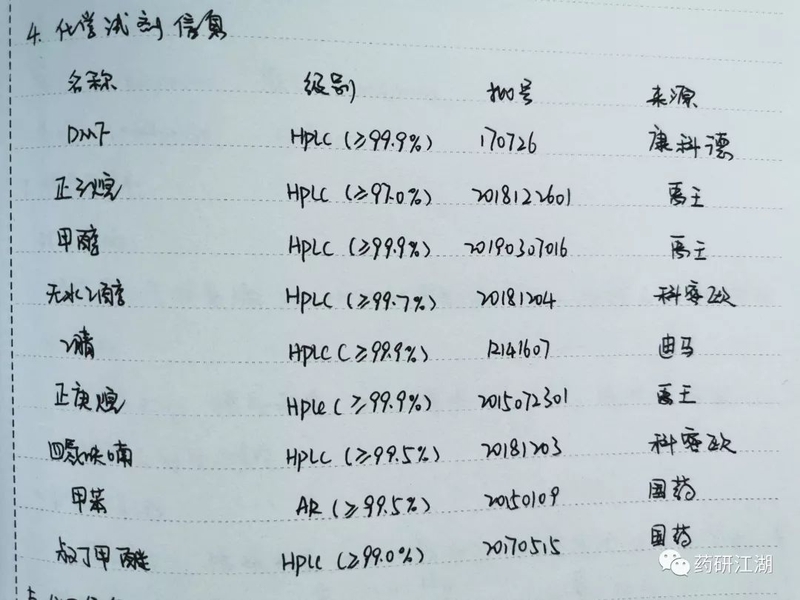 4. 化学试剂信息
名称 级别 批号 来源
DMF HPLC (≥99.9%) 170726 康科德
正己烷 HPLC (≥97.0%) 2018122601 禹王
甲醇 HPLC (≥99.9%) 20190307016 禹王
无水乙醇 HPLC (≥99.7%) 20181204 科密欧
乙腈 HPLC (≥99.9%) 12141607 迪马
正庚烷 HPLC (≥99.9%) 2015072301 禹王
四氢呋喃 HPLC (≥99.5%) 20181203 科密欧
甲苯 AR (≥99.5%) 20150109 国药
叔丁甲醚 HPLC (≥99.0%) 20170515 国药
药研江湖